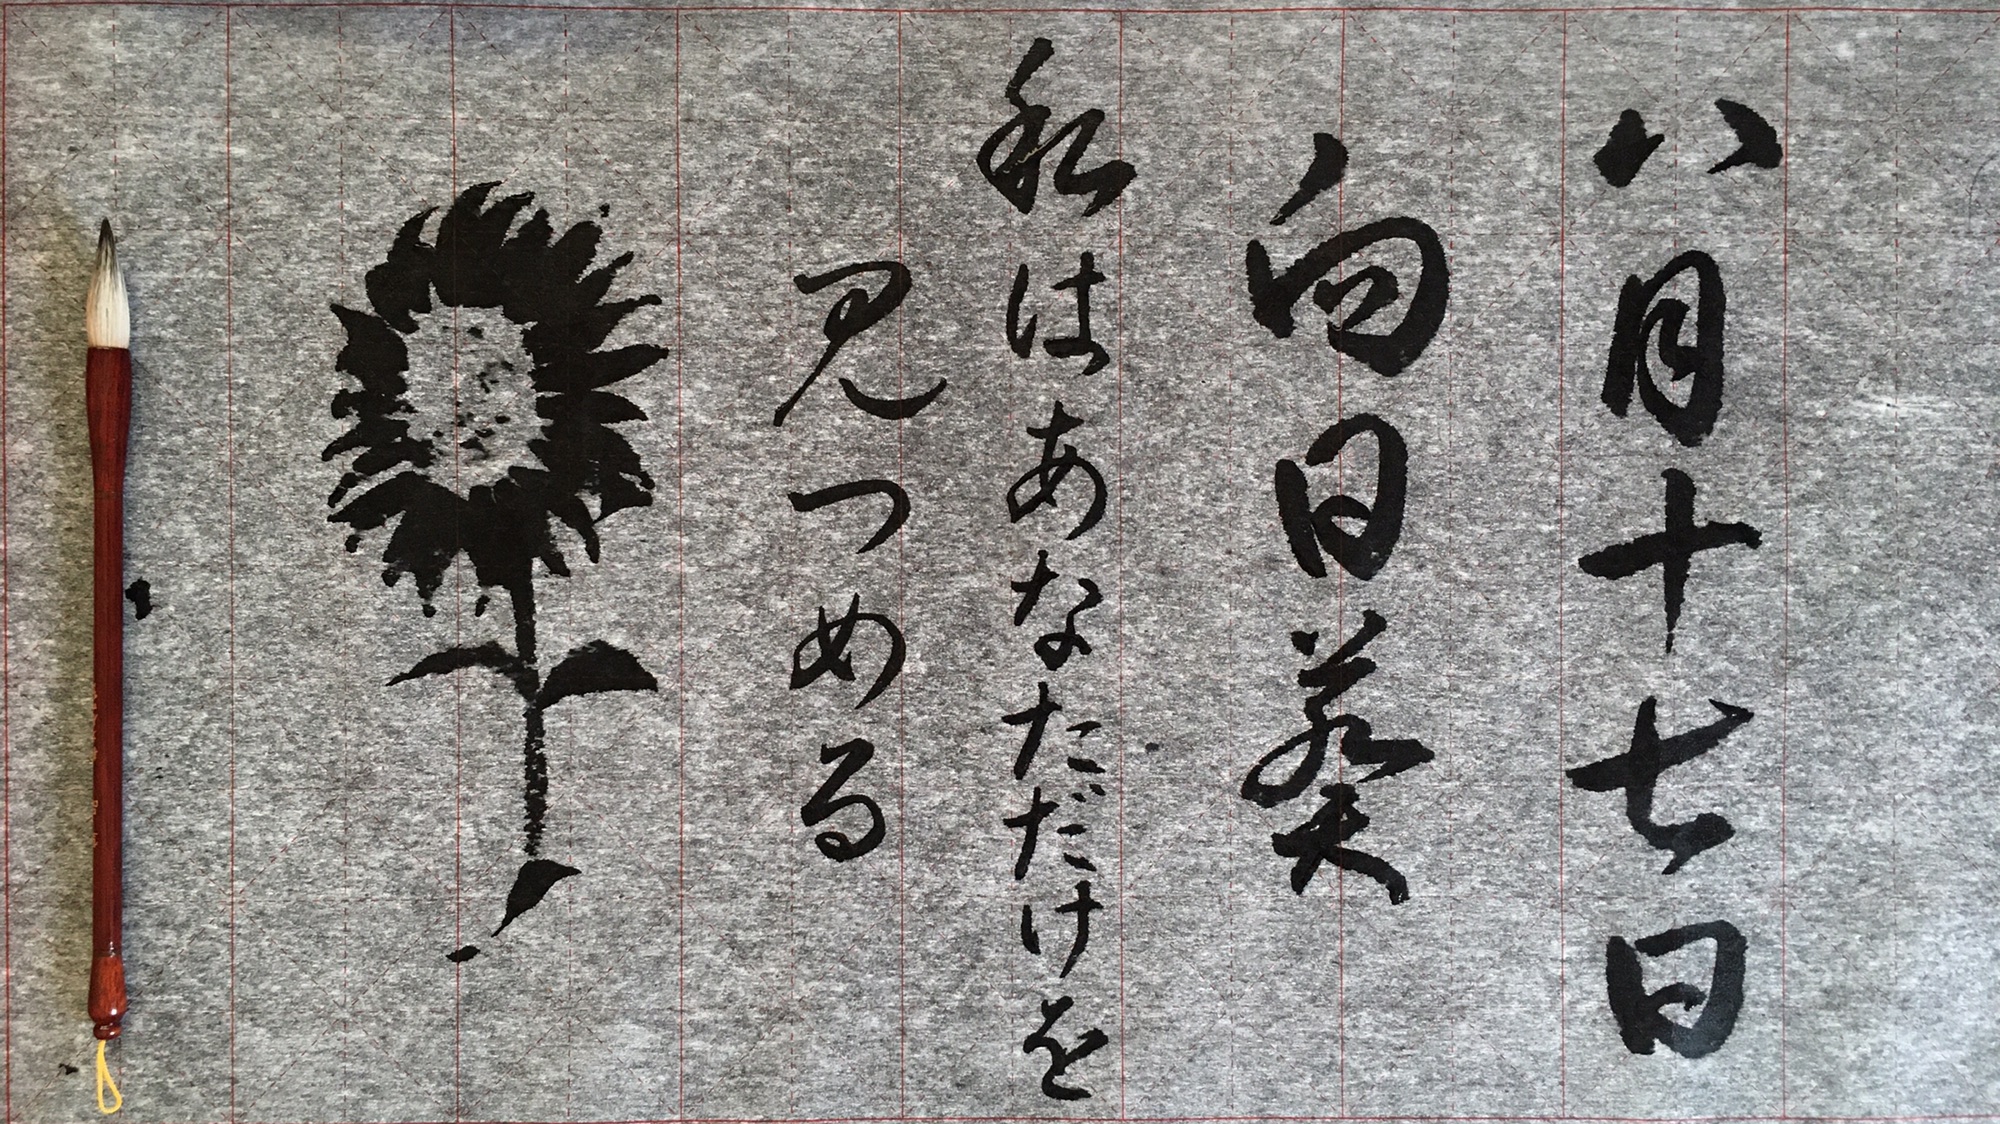 八月十七日
向日葵
私はあなただけを
見つめる